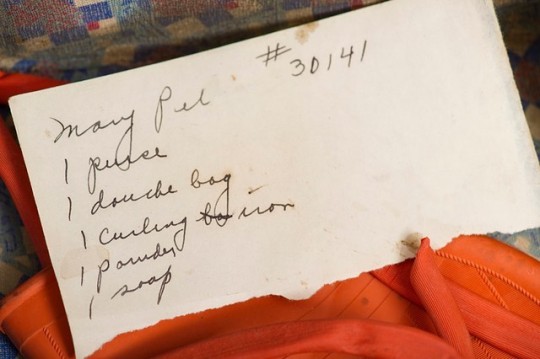 # 30141
Mary Pel
1 purse
1 douche bag
1 curling ba iron
1 powder
1 soap